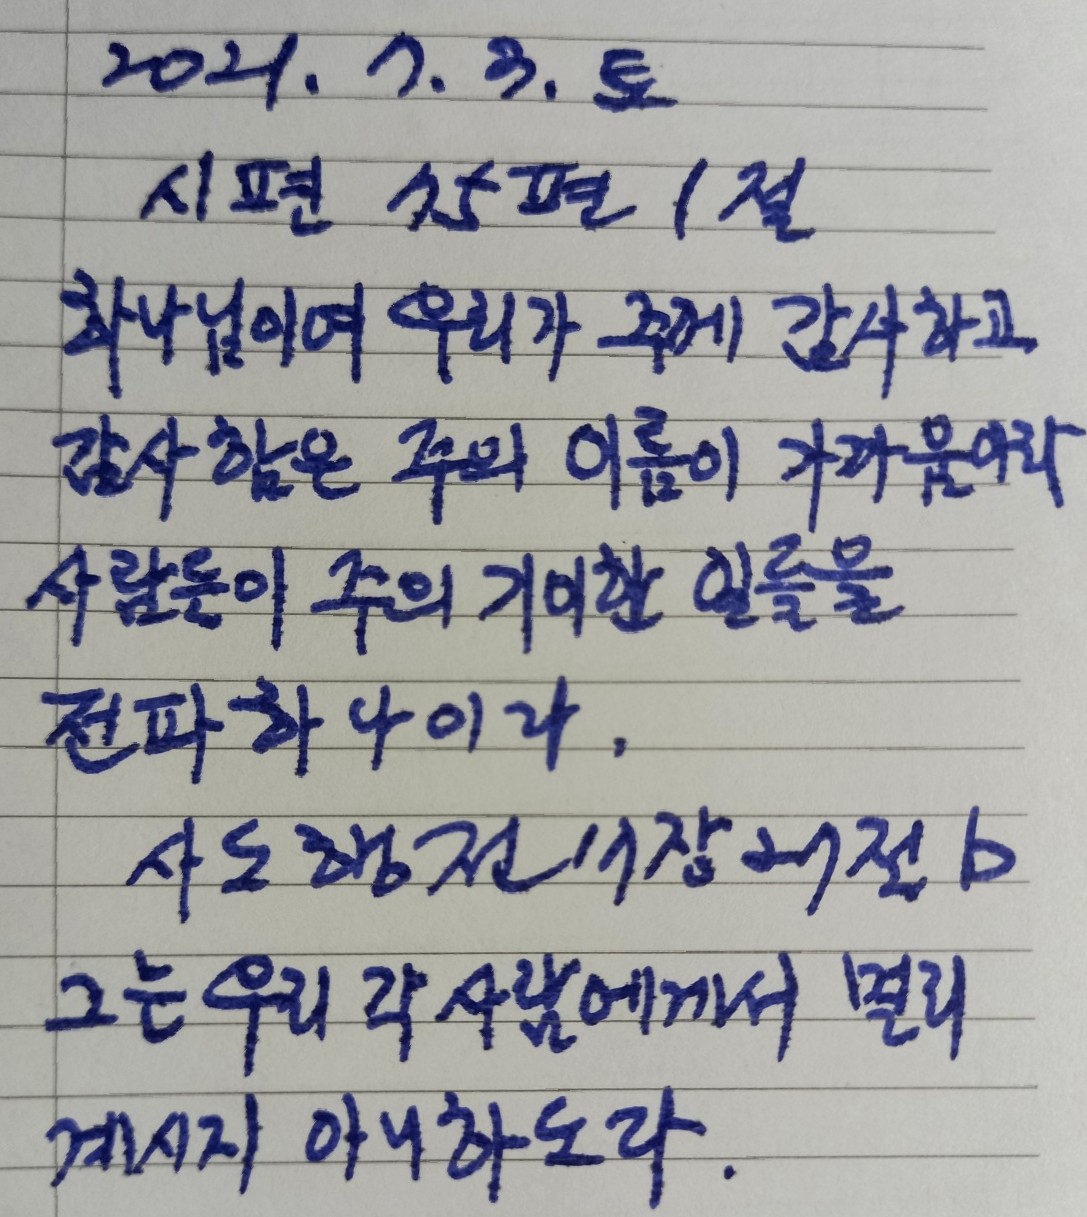 2021. 7. 3. 토
시편 75편 1절
하나님이여 우리가 주께 감사하고
감사함은 주의 이름이 가까움이라
사람들이 주의 기이한 일들을
전파하나이다.
사도행전 17장 27절 b
그는 우리 각 사람에게서 멀리
계시지 아니하도다.